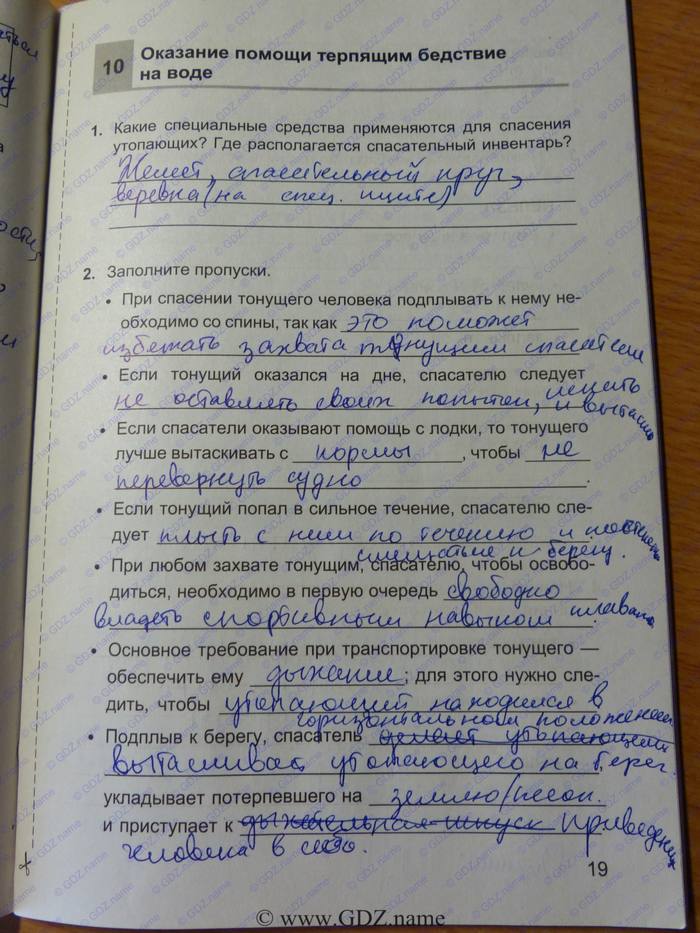 10 Оказание помощи терпящим бедствие
на воде
1. Какие специальные средства применяются для спасения
утопающих? Где располагается спасательный инвентарь?
Жилет, спасательный круг,
веревка (на спец. щите)
2. Заполните пропуски.
• При спасении тонущего человека подплывать к нему не-
обходимо со спины, так как это поможет
избежать захвата тонущим спасателя
• Если тонущий оказался на дне, спасателю следует
не оставлять своих попыток, искать
и вытаскив
• Если спасатели оказывают помощь с лодки, то тонущего
лучше вытаскивать с кормы, чтобы не
перевернуть судно.
• Если тонущий попал в сильное течение, спасателю сле-
дует плыть с ним по течению и постепенно
смещаться к берегу.
• При любом захвате тонущим, спасателю, чтобы освобо-
диться, необходимо в первую очередь свободно
владеть спортивным навыком плавания.
• Основное требование при транспортировке тонущего —
обеспечить ему дыхание; для этого нужно сле-
дить, чтобы утопающий находился в
горизонтальном положении
• Подплыв к берегу, спасатель делает утопающему
вытаскивает утопающего на берег.
укладывает потерпевшего на землю/песок.
и приступает к приведению
человека в себя.
19
© www.GDZ.name